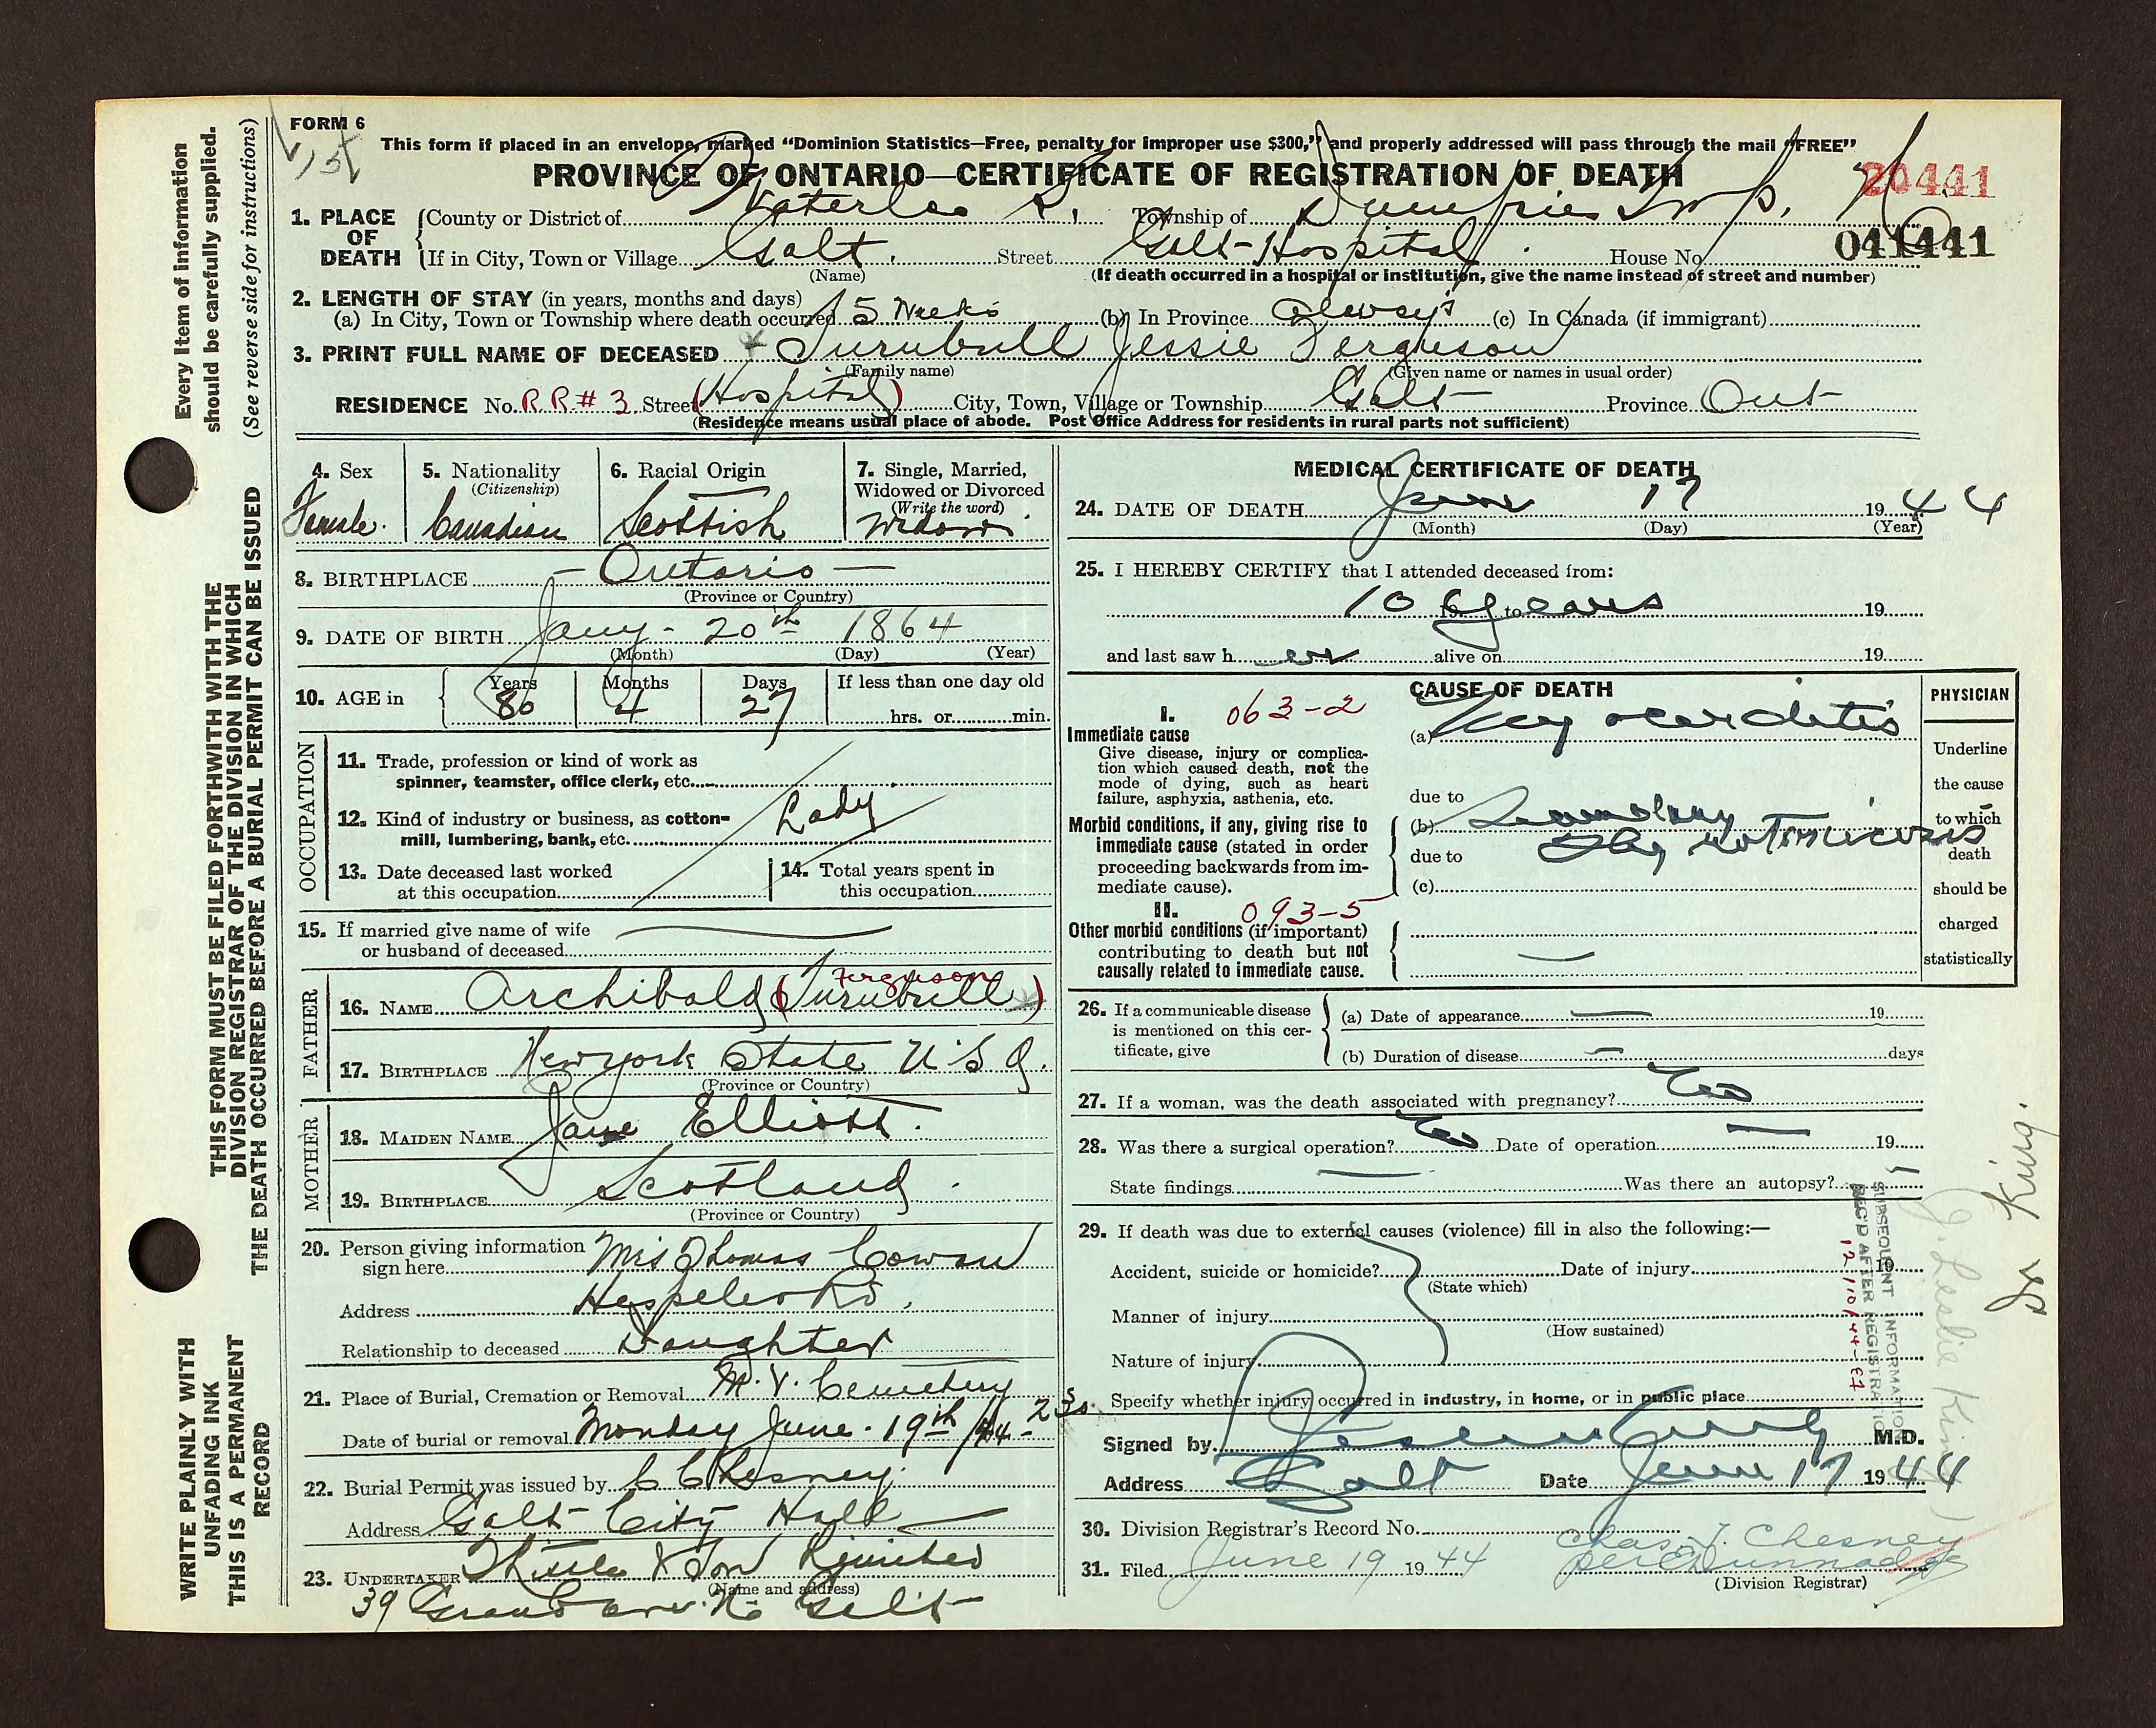 FORM 6
This form if placed in an envelope, marked “Dominion Statistics—Free, penalty for improper use $300,” and properly addressed will pass through the mail “FREE”
PROVINCE OF ONTARIO—CERTIFICATE OF REGISTRATION OF DEATH
20441
041441
1. PLACE OF DEATH
County or District of Waterloo Township of Dumfries Twp. N
If in City, Town or Village Galt. Street Galt Hospital. House No.
(Name) (If death occurred in a hospital or institution, give the name instead of street and number)
2. LENGTH OF STAY (in years, months and days)
(a) In City, Town or Township where death occurred 5 Weeks (b) In Province Always (c) In Canada (if immigrant)
3. PRINT FULL NAME OF DECEASED Turnbull Jessie Ferguson
(Family name) (Given name or names in usual order)
RESIDENCE No. RR#3 Street (Hospital) City, Town, Village or Township Galt Province Ont
(Residence means usual place of abode. Post Office Address for residents in rural parts not sufficient)
4. Sex
Female.
5. Nationality
(Citizenship)
Canadian
6. Racial Origin
Scottish
7. Single, Married,
Widowed or Divorced
(Write the word)
Widow
8. BIRTHPLACE — Ontario —
(Province or Country)
9. DATE OF BIRTH Jany - 20th 1864
(Month) (Day) (Year)
10. AGE in
Years Months Days If less than one day old
80 4 27 hrs. or min.
OCCUPATION
11. Trade, profession or kind of work as
spinner, teamster, office clerk, etc.
12. Kind of industry or business, as cotton-
mill, lumbering, bank, etc. Lady
13. Date deceased last worked
at this occupation
14. Total years spent in
this occupation
15. If married give name of wife
or husband of deceased
FATHER
16. NAME Archibald (Turnbull) Ferguson
17. BIRTHPLACE New york State U S A.
(Province or Country)
MOTHER
18. MAIDEN NAME Jane Elliott.
19. BIRTHPLACE Scotland.
(Province or Country)
20. Person giving information
sign here Mrs Thomas Cowan
Address Hespeler Rd.
Relationship to deceased Daughter
21. Place of Burial, Cremation or Removal M. V. Cemetery
Date of burial or removal Monday June. 19th /44
22. Burial Permit was issued by C Chesney.
Address Galt City Hall
23. UNDERTAKER & Son Limited
(Name and address)
39 Grand ave. No Galt
MEDICAL CERTIFICATE OF DEATH
24. DATE OF DEATH June 17 1944
(Month) (Day) (Year)
25. I HEREBY CERTIFY that I attended deceased from:
10 years 19 to 19
and last saw her alive on 19
CAUSE OF DEATH
I. 063-2
Immediate cause
Give disease, injury or complica-
tion which caused death, not the
mode of dying, such as heart
failure, asphyxia, asthenia, etc.
Morbid conditions, if any, giving rise to
immediate cause (stated in order
proceeding backwards from im-
mediate cause).
II. 093-5
Other morbid conditions (if important)
contributing to death but not
causally related to immediate cause.
(a) Myocarditis
due to
(b) Secondary
due to Thyrotoxicosis
(c)
PHYSICIAN
Underline
the cause
to which
death
should be
charged
statistically
26. If a communicable disease
is mentioned on this cer-
tificate, give
(a) Date of appearance 19
(b) Duration of disease days
27. If a woman, was the death associated with pregnancy? No
28. Was there a surgical operation? No Date of operation 19
State findings Was there an autopsy?
29. If death was due to external causes (violence) fill in also the following:—
Accident, suicide or homicide? Date of injury 19
(State which)
Manner of injury
(How sustained)
Nature of injury
Specify whether injury occurred in industry, in home, or in public place
Signed by Leslie King M.D.
Address Galt Date June 17 1944
30. Division Registrar's Record No.
31. Filed June 19 1944
Chas. J. Chesney
per
(Division Registrar)
SUBSEQUENT INFORMATION
REC'D AFTER REGISTRATION
12/10/44
(J. Leslie King)
Dr King.
Every Item of Information
should be carefully supplied.
(See reverse side for instructions)
THIS FORM MUST BE FILED FORTHWITH WITH THE
DIVISION REGISTRAR OF THE DIVISION IN WHICH
THE DEATH OCCURRED BEFORE A BURIAL PERMIT CAN BE ISSUED
WRITE PLAINLY WITH
UNFADING INK
THIS IS A PERMANENT
RECORD